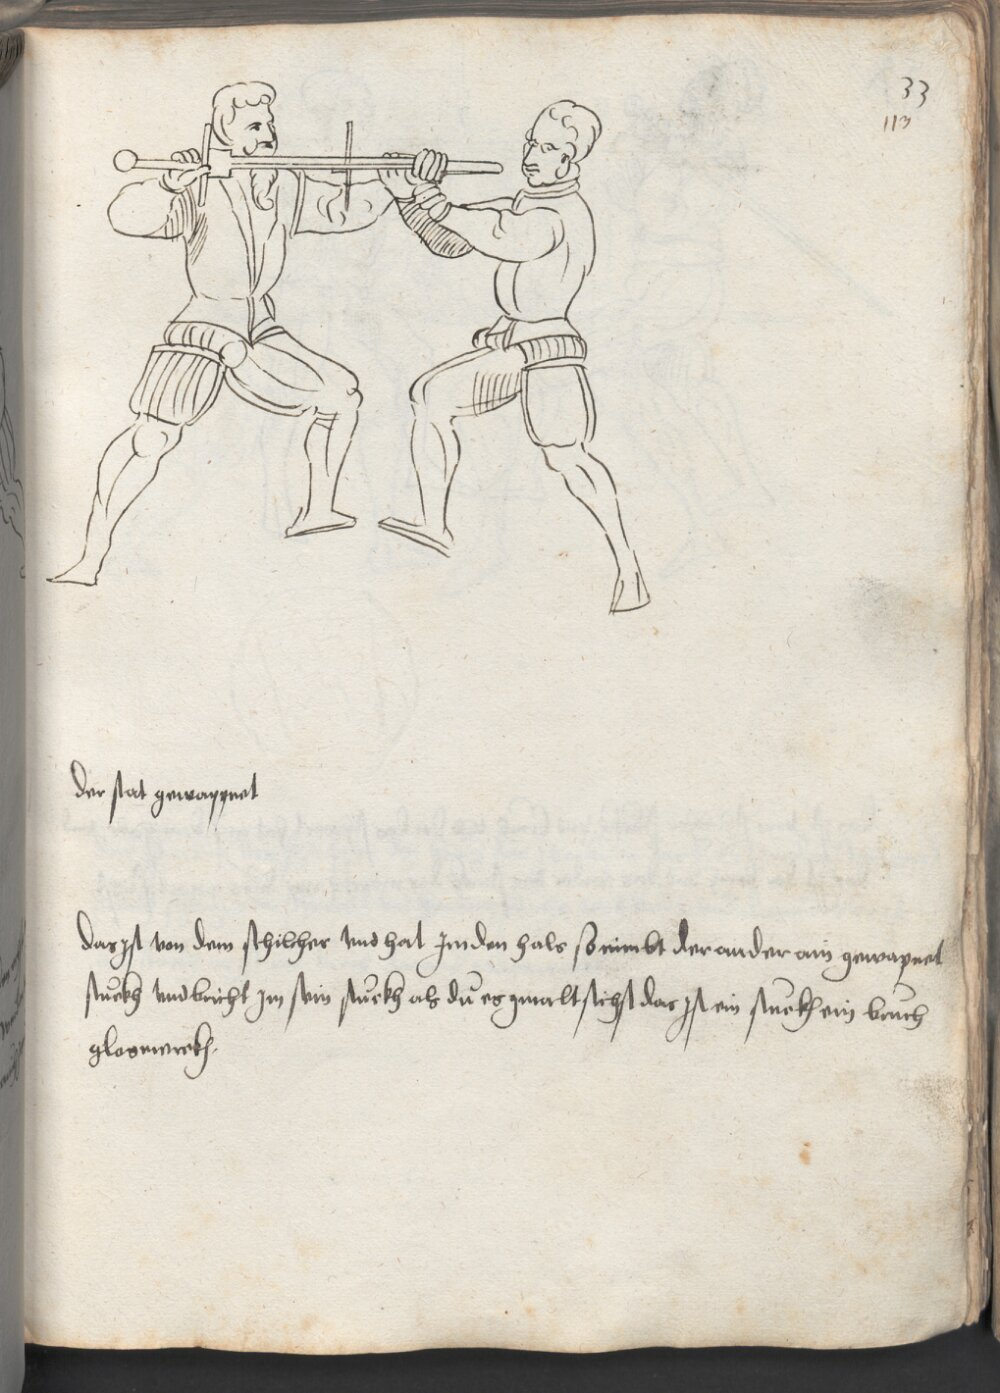 33
113
der stat gewappnet
das ist von dem schilcher vnd hat im den hals so nimbt der ander ain gewapnet
stuckh vnd bricht im sein stuckh als du es gmalt sichst das ist ein stuckh ein bruch